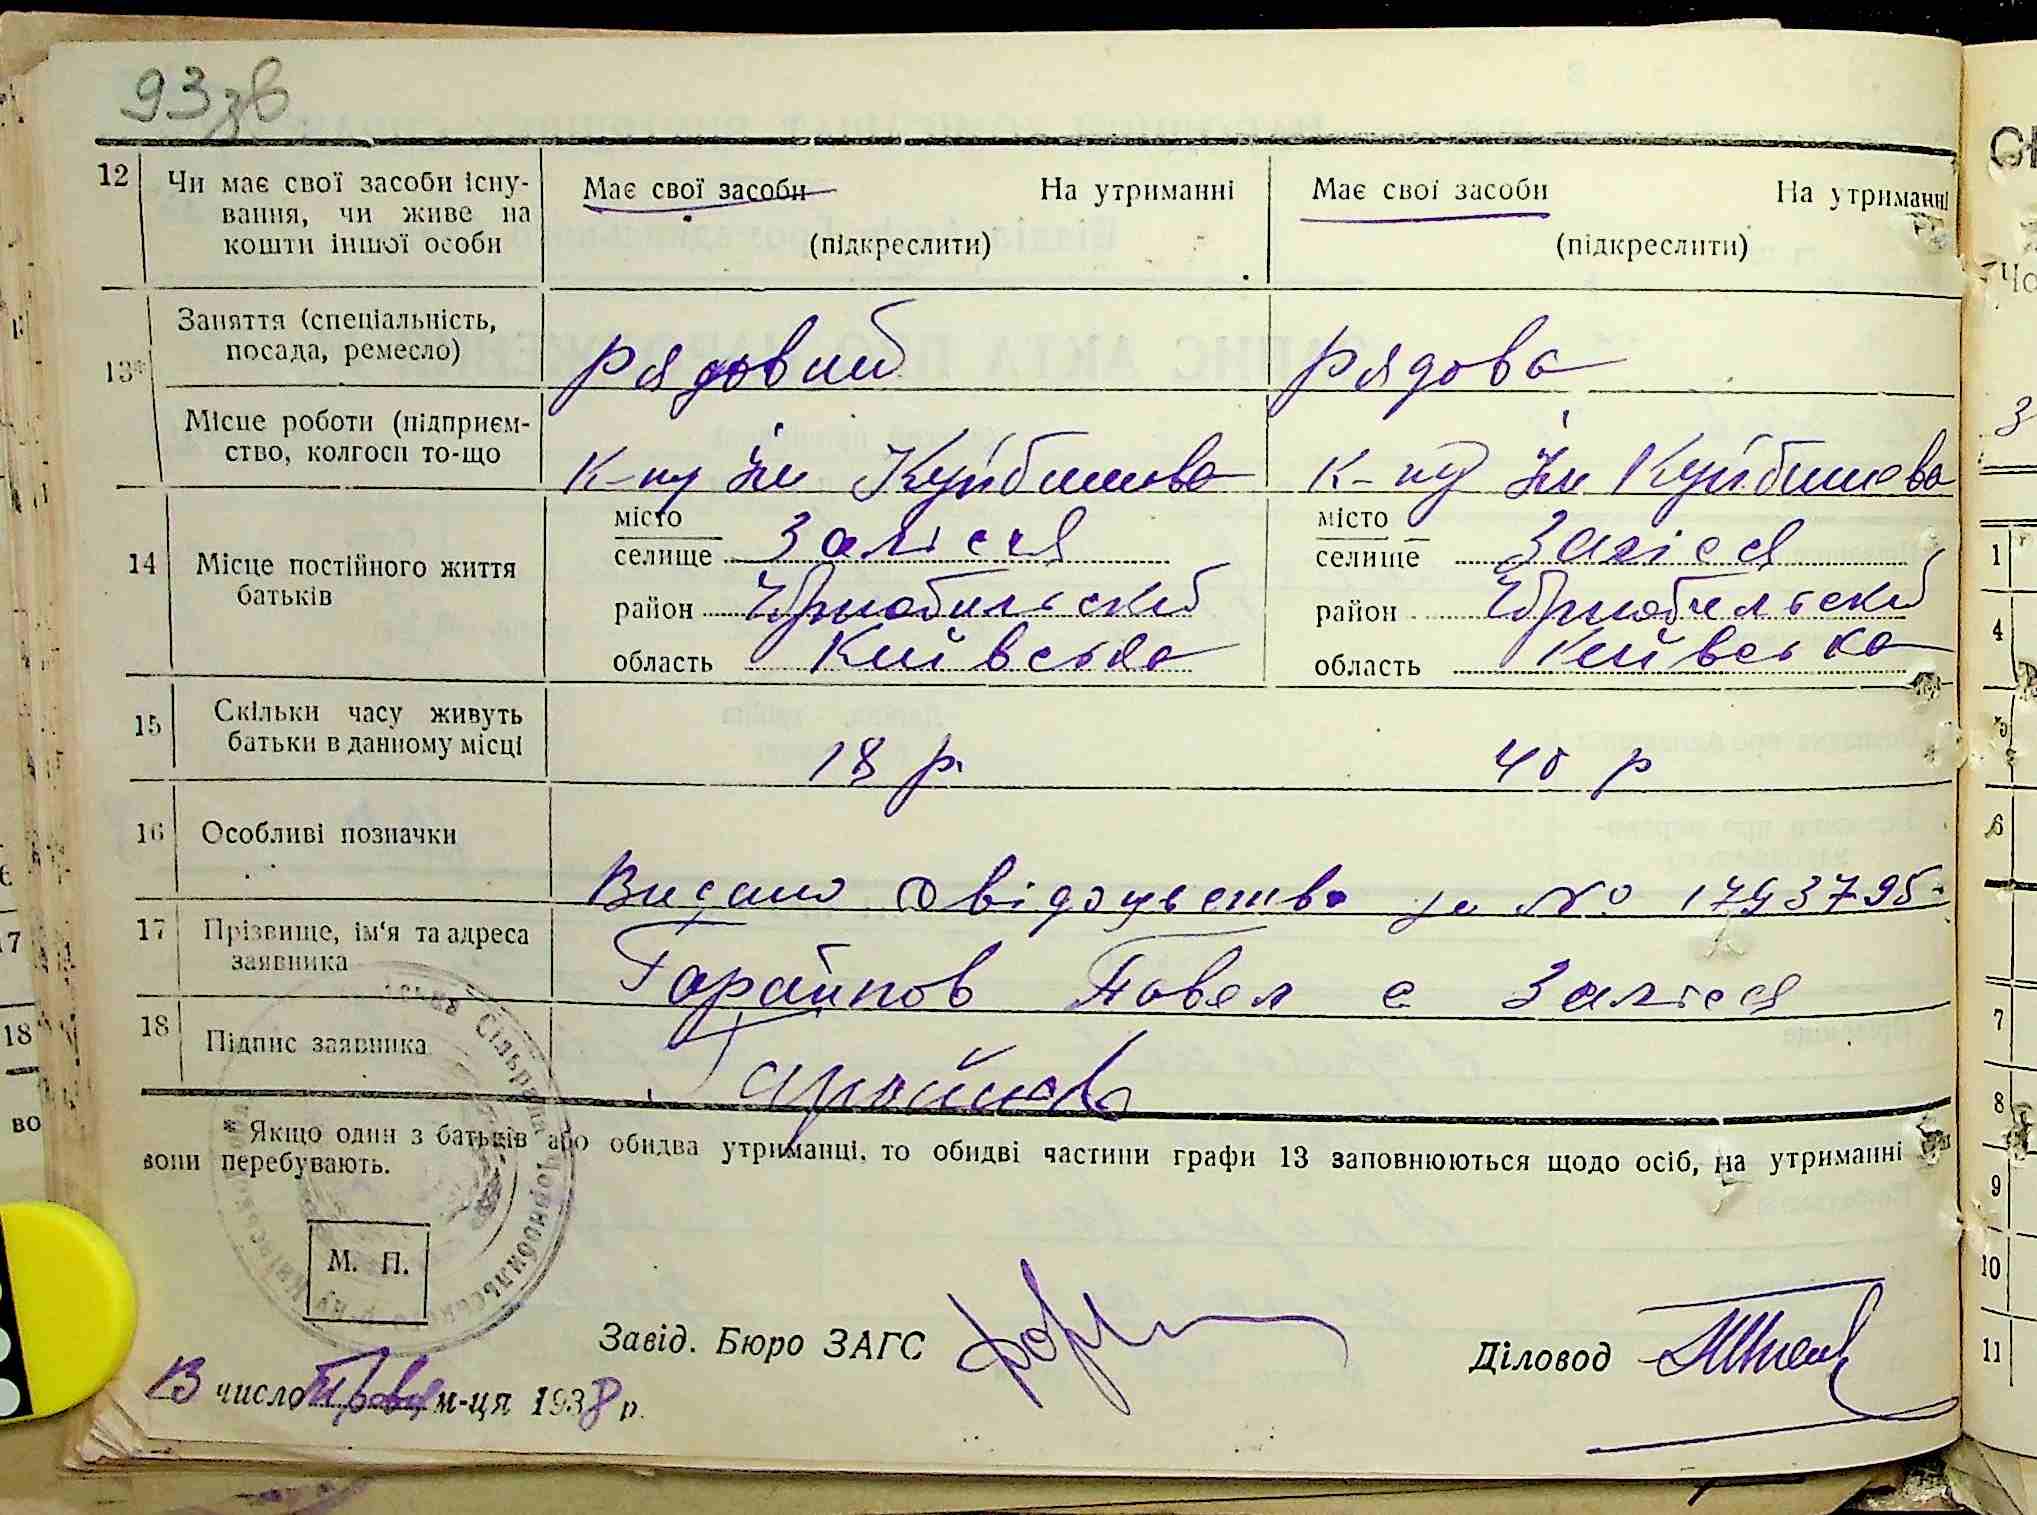 93 зв
12 Чи має свої засоби існу-
вання, чи живе на
кошти іншої особи
Має свої засоби На утриманні
(підкреслити)
Має свої засоби На утриманні
(підкреслити)
13* Заняття (спеціальність,
посада, ремесло)
рядовий
рядова
Місце роботи (підприєм-
ство, колгосп то-що
К-пу ім Куйбишева
К-пу ім Куйбишева
14 Місце постійного життя
батьків
місто
селище Залісся
район Чорнобильський
область Київська
місто
селище Залісся
район Чорнобильський
область Київська
15 Скільки часу живуть
батьки в данному місці
18 р.
40 р
16 Особливі позначки
Видано свідоцьство за № 1793795
17 Прізвище, ім'я та адреса
заявника
Гарайпов Павел с Залісся
18 Підпис заявника
Гарайпов
* Якщо один з батьків або обидва утриманці, то обидві частини графи 13 заповнюються щодо осіб, на утриманні
вони перебувають.
Сільрада Чорнобильського р-ну Київської
М. П.
Завід. Бюро ЗАГС
Діловод
13 число Травня м-ця 1938 р.
СВ
Чо
З
1
4
5
6
7
8
9
10
11
17
18
во